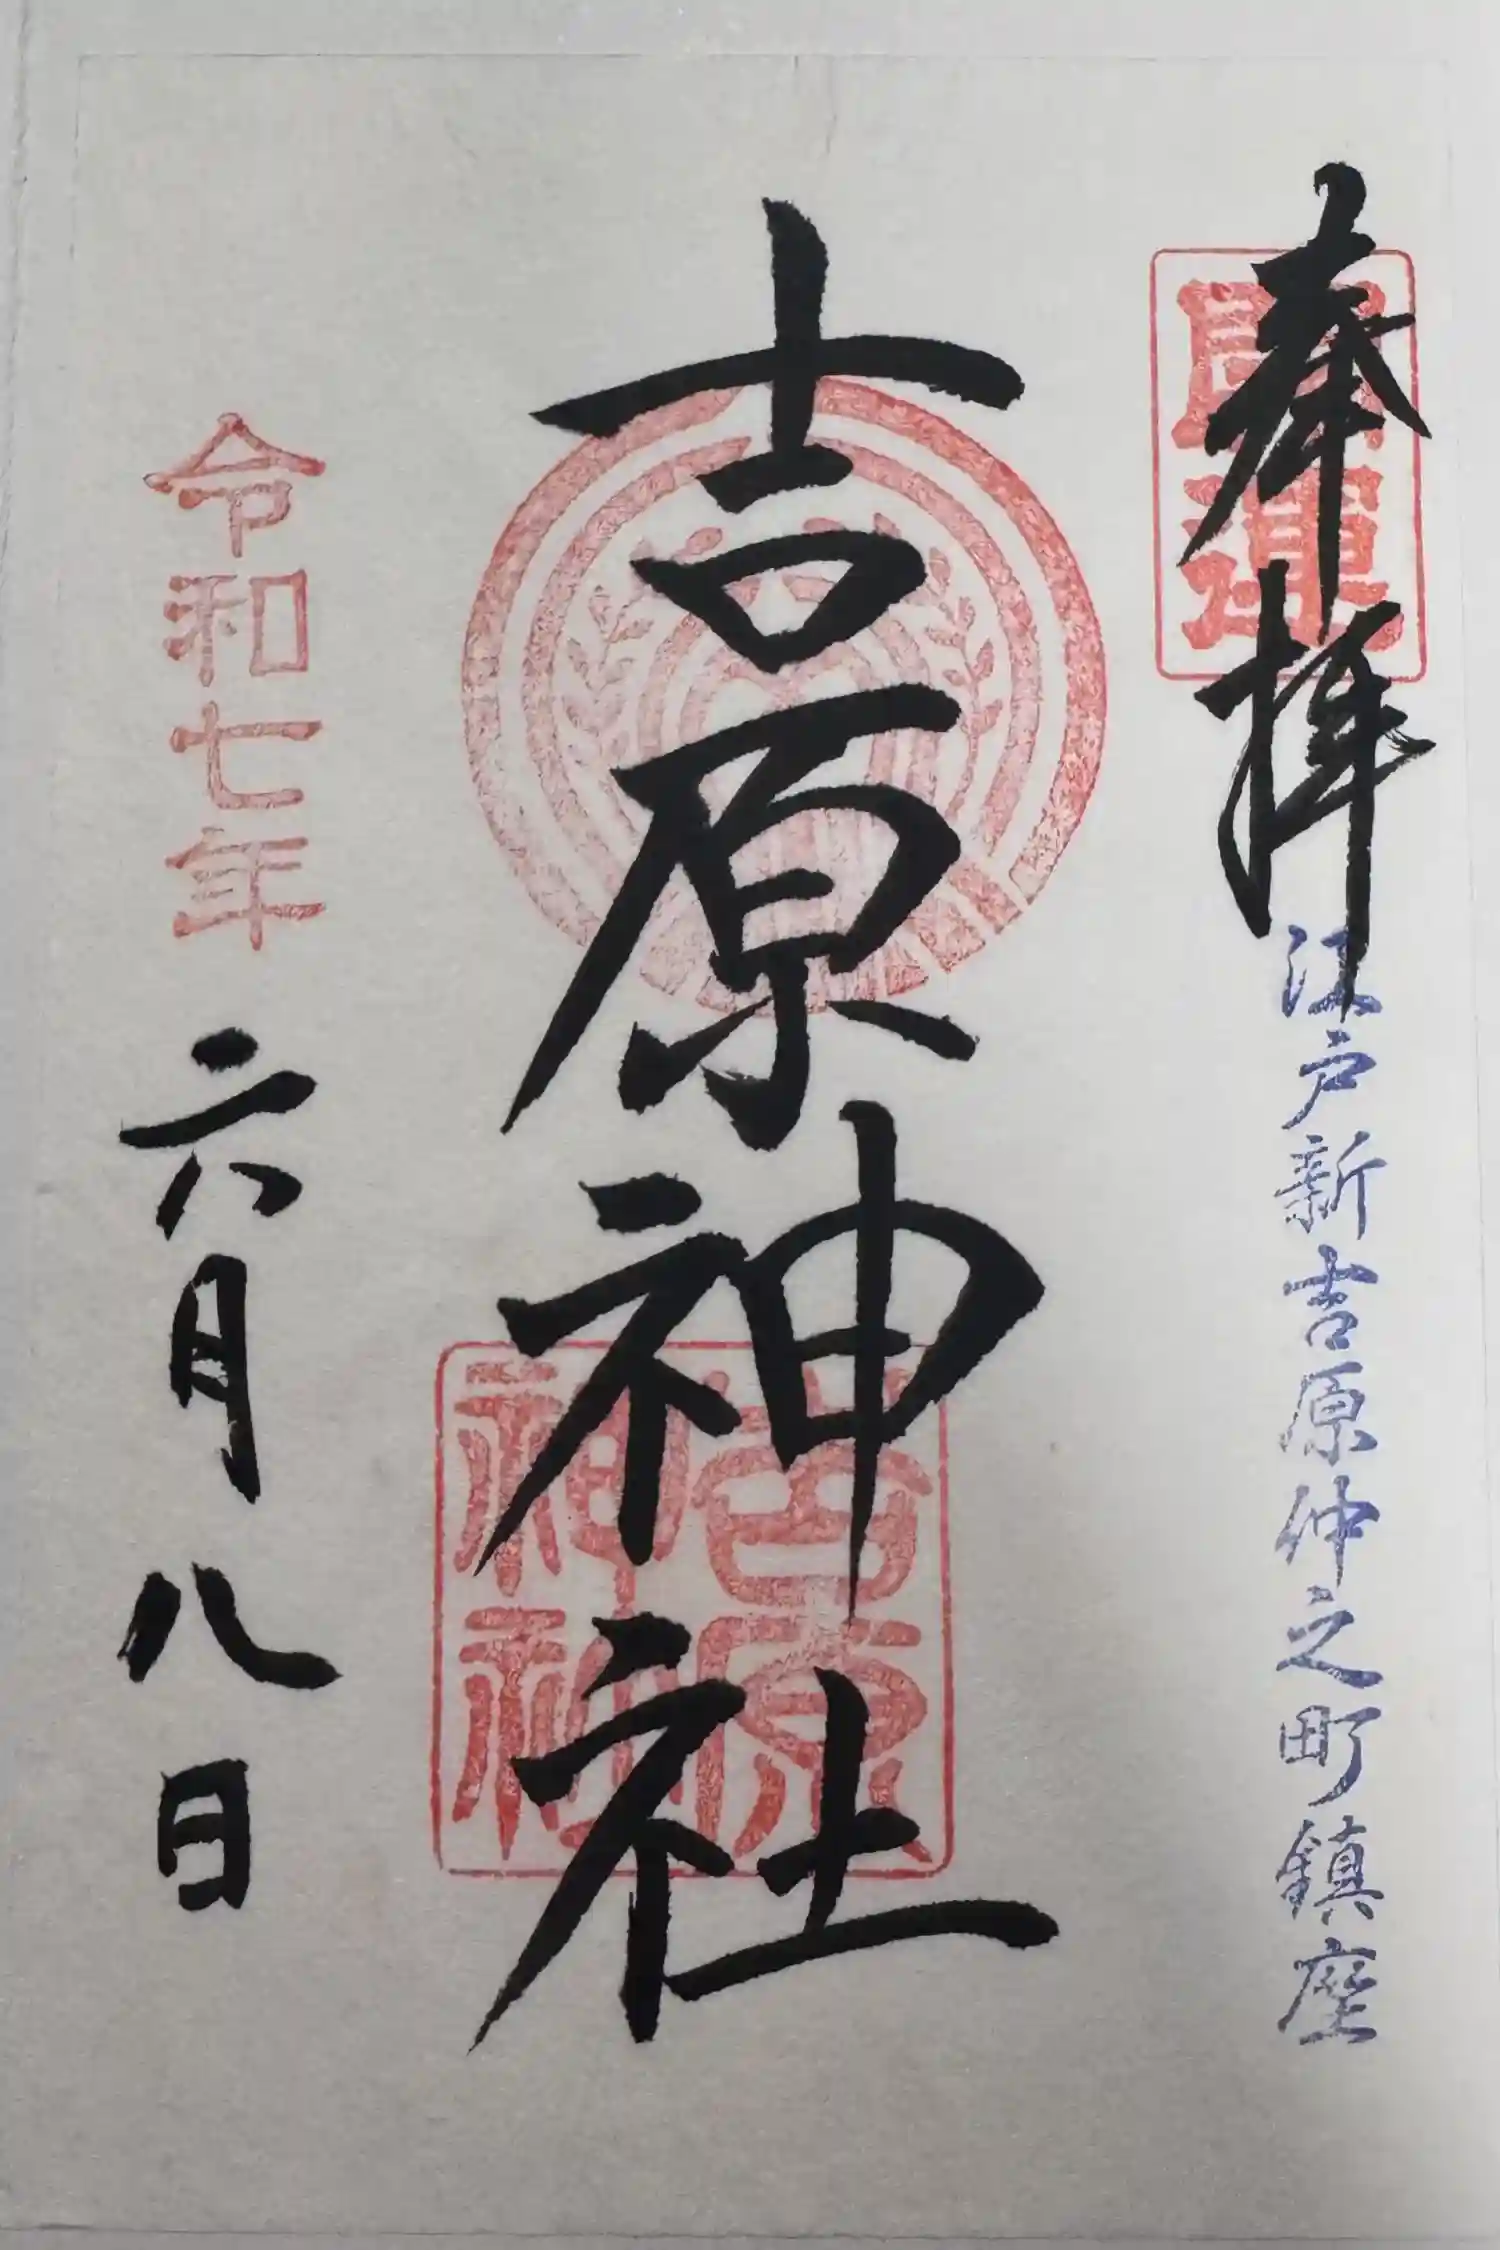 奉拝
開運
江戸新吉原仲之町鎮座
吉原神社
吉原
神社
令和七年
六月八日